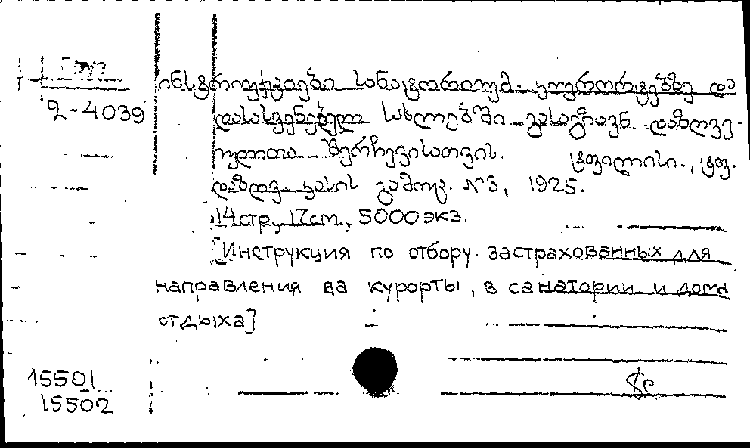 Груз
2-4039
ინსტრუქციები სანატორიუმ-კურორტებზე და
დასასვენებელ სახლებში გასაგზავნ დაზღვე-
ულთა შერჩევისათვის. ტფილისი., ტფ.
დაზღვ. კასის გამოც. №3, 1925.
14стр., 17cm., 5000экз.
[Инструкция по отбору застрахованных для
направления на курорты, в санатории и дома
отдыха]
15501
15502